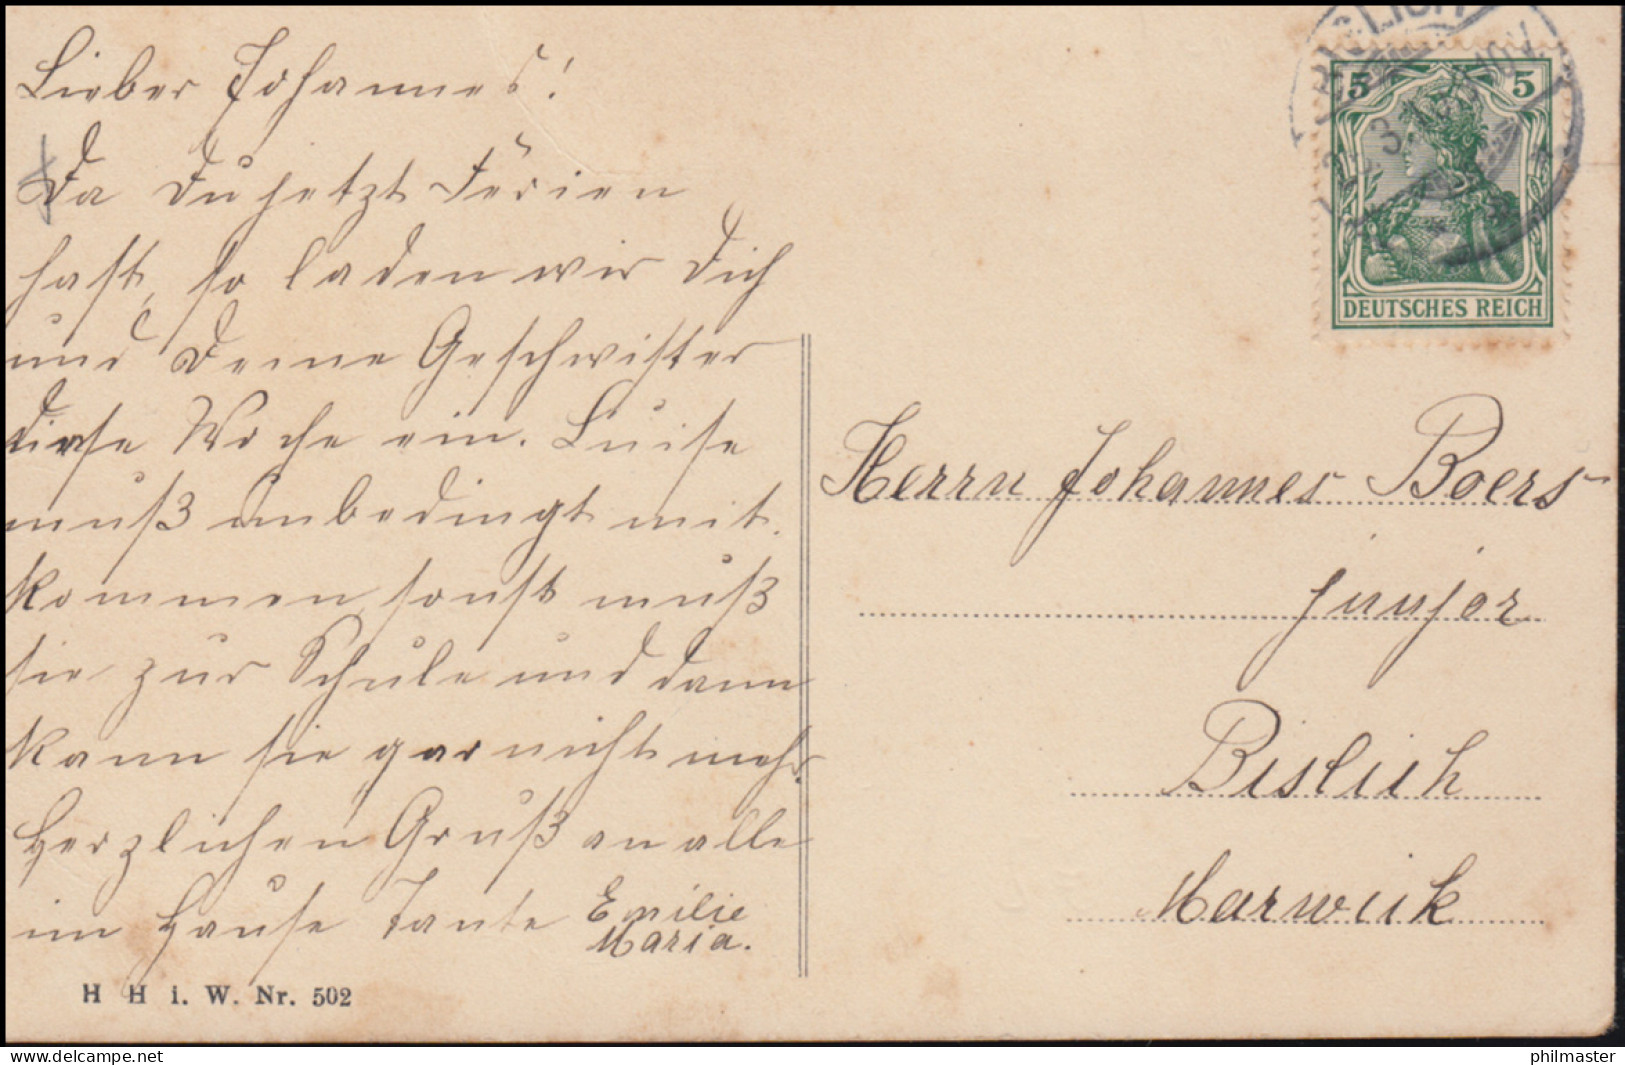 Lieber Johannes!
Da Du jetzt Ferien
hast, so laden wir Dich
und Deine Geschwister
diese Woche ein. Luise
muß unbedingt mit
kommen, sonst muß
sie zur Schule und dann
kann sie gar nicht mehr.
Herzlichen Gruß an alle
im Hause Tante Emilie
Maria.
H H i. W. Nr. 502
5 5
DEUTSCHES REICH
Herrn Johannes Boers
junjor
Bislich
Marwick
delcampe.net
philmaster